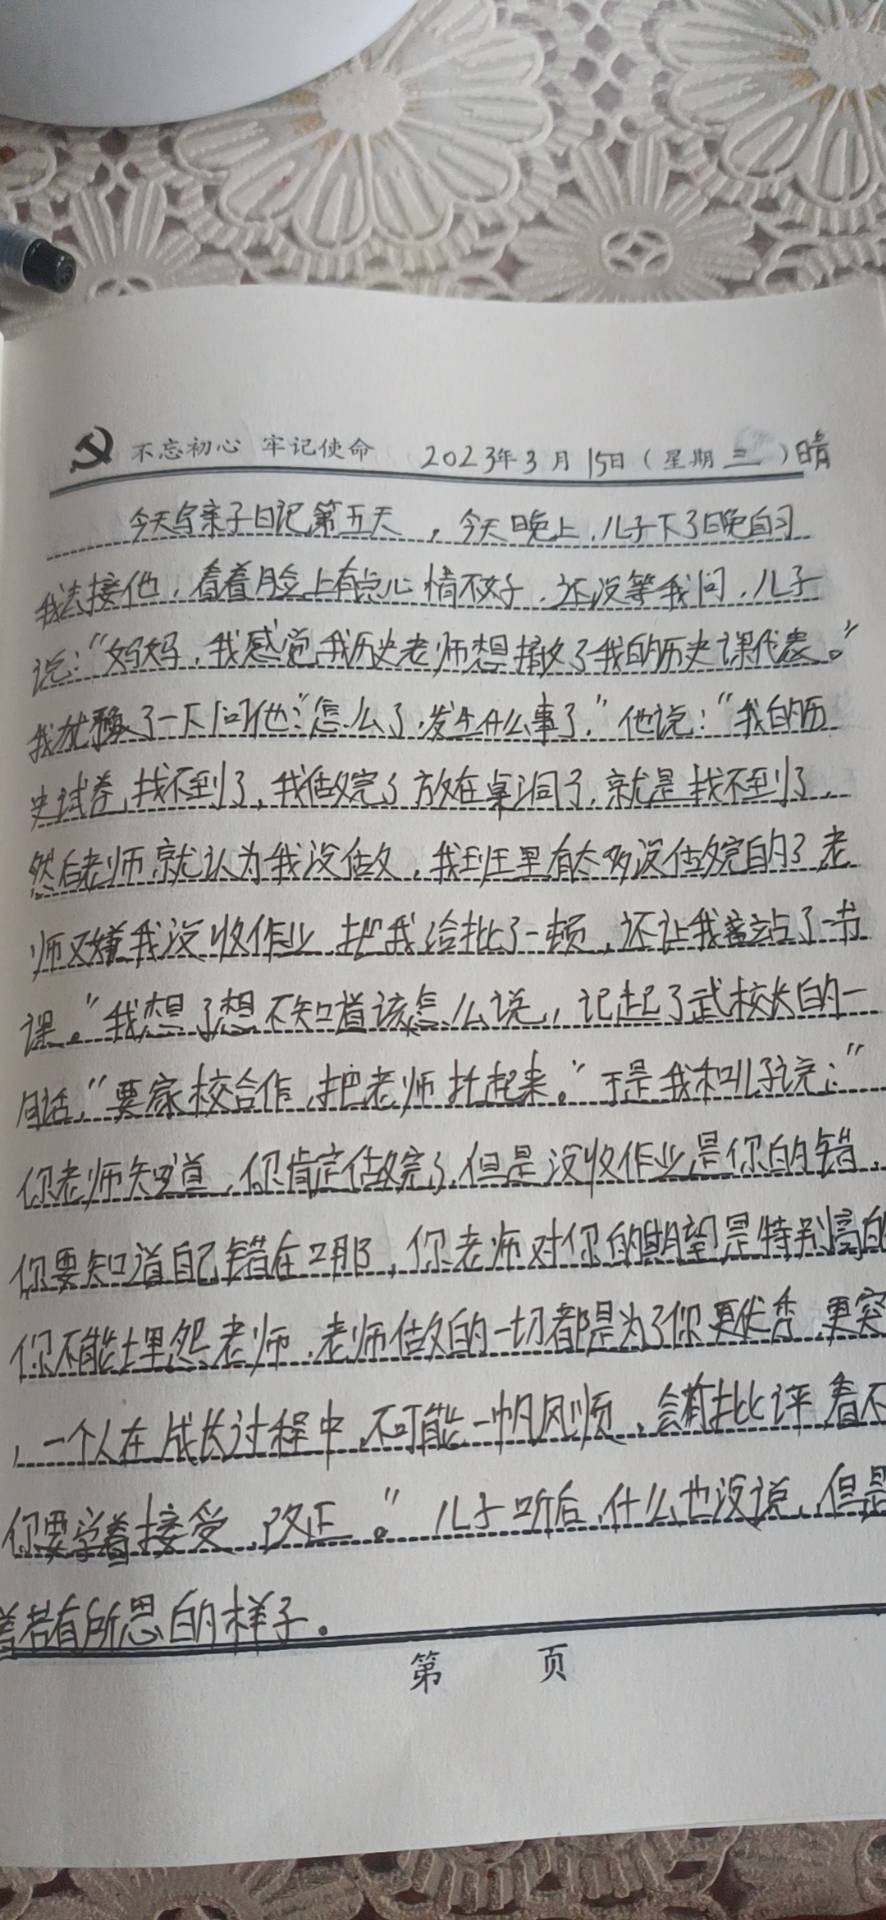 不忘初心 牢记使命 2023年3月15日（星期三）晴
今天写亲子日记第五天，今天晚上，儿子下了晚自习
我去接他，看着脸上有点心情不好，还没等我问，儿子
说：“妈妈，我感觉我历史老师想撤了我的历史课代表。”
我犹豫了一下问他：“怎么了，发生什么事了，”他说：“我的历
史试卷，找不到了，我做完了放在桌洞了，就是找不到了，
然后老师就认为我没做，我班里有太多没做完的了老
师又嫌我没收作业，把我给批了一顿，还让我站了一节
课。”我想了想不知道该怎么说，记起了武校长的一
句话，“要家校合作，把老师托起来。”于是我和儿子说：“
你老师知道，你肯定做完了，但是没收作业是你的错，
你要知道自己错在哪，你老师对你的期望是特别高的
你不能埋怨老师，老师做的一切都是为了你更优秀，更突
，一个人在成长过程中，不可能一帆风顺，会有批评，看不
你要学着接受，改正。”儿子听后，什么也没说，但是
着若有所思的样子。
第 页